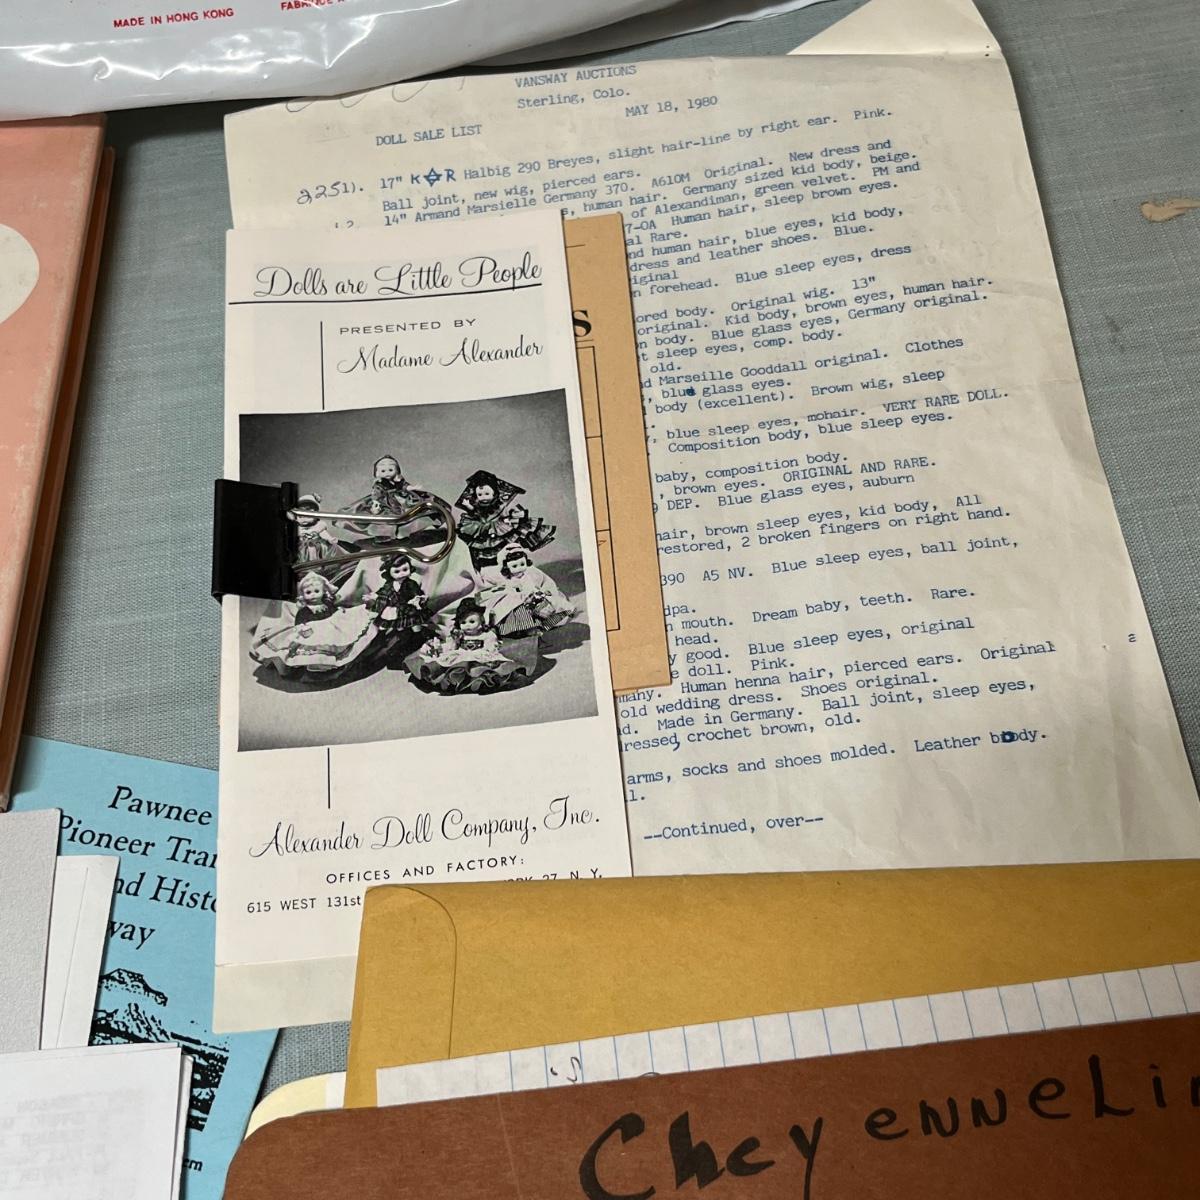 MADE IN HONG KONG
VANSWAY AUCTIONS
Sterling, Colo.
MAY 18, 1980
DOLL SALE LIST
2251).
17" K R Halbig 290 Breyes, slight hair-line by right ear. Pink.
Ball joint, new wig, pierced ears.
14" Armand Marsielle Germany 370. A610M Original. New dress and
human hair. Germany sized kid body, beige.
of Alexandiman, green velvet. PM and
7-OA Human hair, sleep brown eyes.
al Rare.
nd human hair, blue eyes, kid body,
dress and leather shoes. Blue.
iginal
n forehead. Blue sleep eyes, dress
ored body. Original wig. 13"
original. Kid body, brown eyes, human hair.
n body. Blue glass eyes, Germany original.
t sleep eyes, comp. body.
old.
d Marseille Gooddall original. Clothes
, blue glass eyes.
body (excellent). Brown wig, sleep
, blue sleep eyes, mohair. VERY RARE DOLL.
Composition body, blue sleep eyes.
baby, composition body.
, brown eyes. ORIGINAL AND RARE.
DEP. Blue glass eyes, auburn
hair, brown sleep eyes, kid body, All
restored, 2 broken fingers on right hand.
390 A5 NV. Blue sleep eyes, ball joint,
dpa.
n mouth. Dream baby, teeth. Rare.
head.
y good. Blue sleep eyes, original
e doll. Pink.
many. Human henna hair, pierced ears. Original
old wedding dress. Shoes original.
d. Made in Germany. Ball joint, sleep eyes,
ressed, crochet brown, old.
arms, socks and shoes molded. Leather body.
l.
--Continued, over--
Dolls are Little People
PRESENTED BY
Madame Alexander
Alexander Doll Company, Inc.
OFFICES AND FACTORY:
615 WEST 131st
27 N. Y.
S
Pawnee
Pioneer Trai
nd Histo
way
CheyenneLin